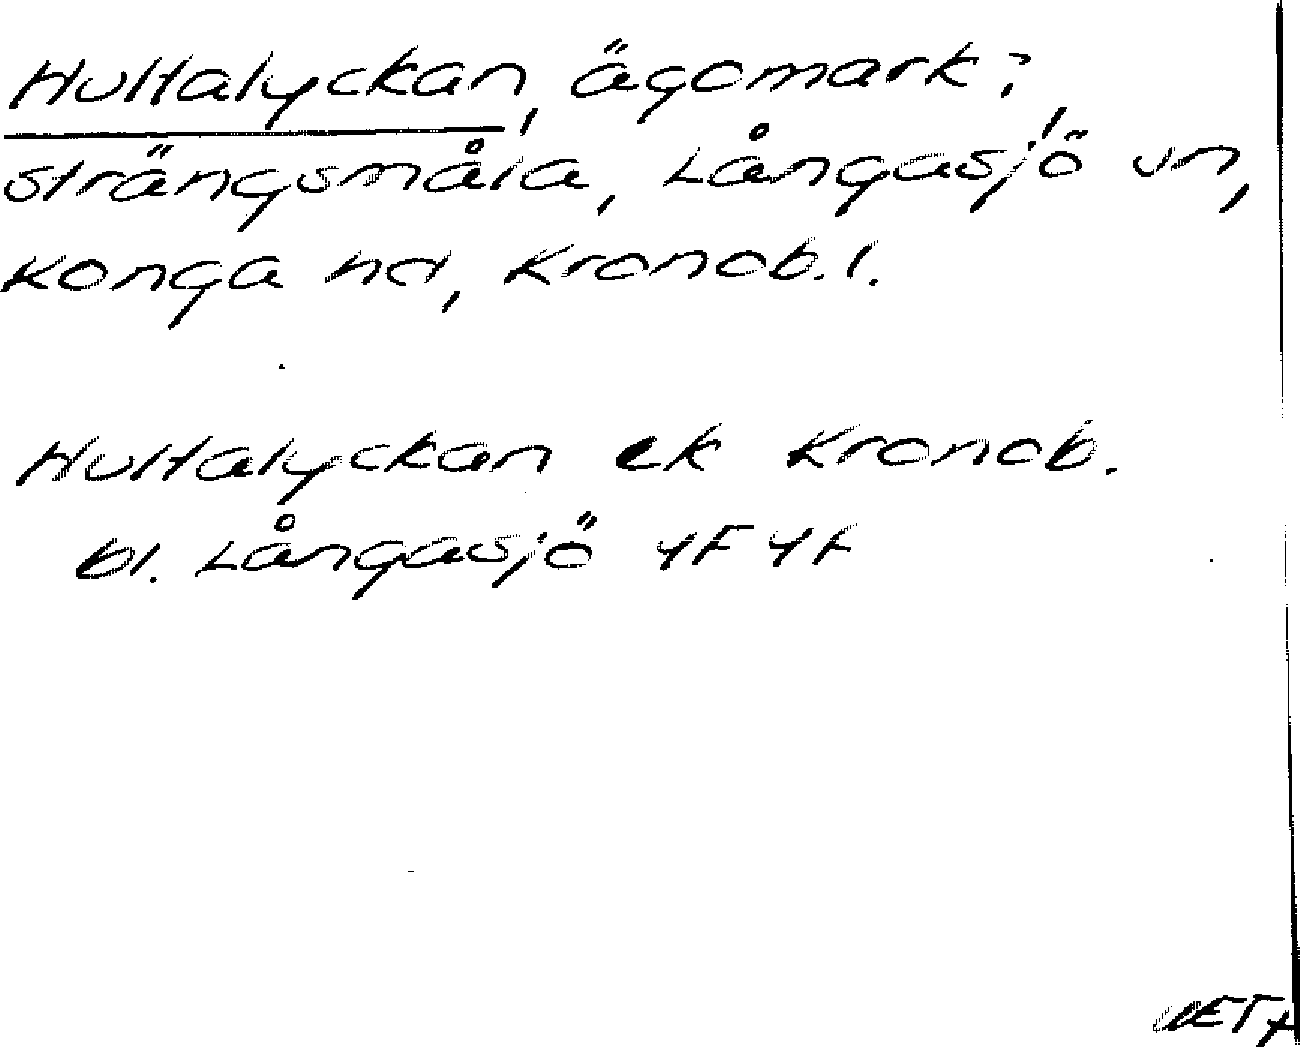 Hultalyckan, ägomark i
Strängsmåla, Långasjö sn,
Konga hd, Kronob. l.
Hultalyckan ek Kronob.
bl. Långasjö 4F 4f